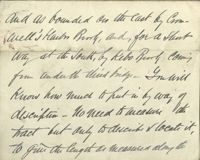 And as bounded on the East by Crom-
well's Harbor Brook, and, for a short
way, at the South, by Kebo Brook coming
from under the third bridge. You will
know how much to put in by way of
description – No need to measure the
tract but only to describe & locate it,
to give the length as measured along the